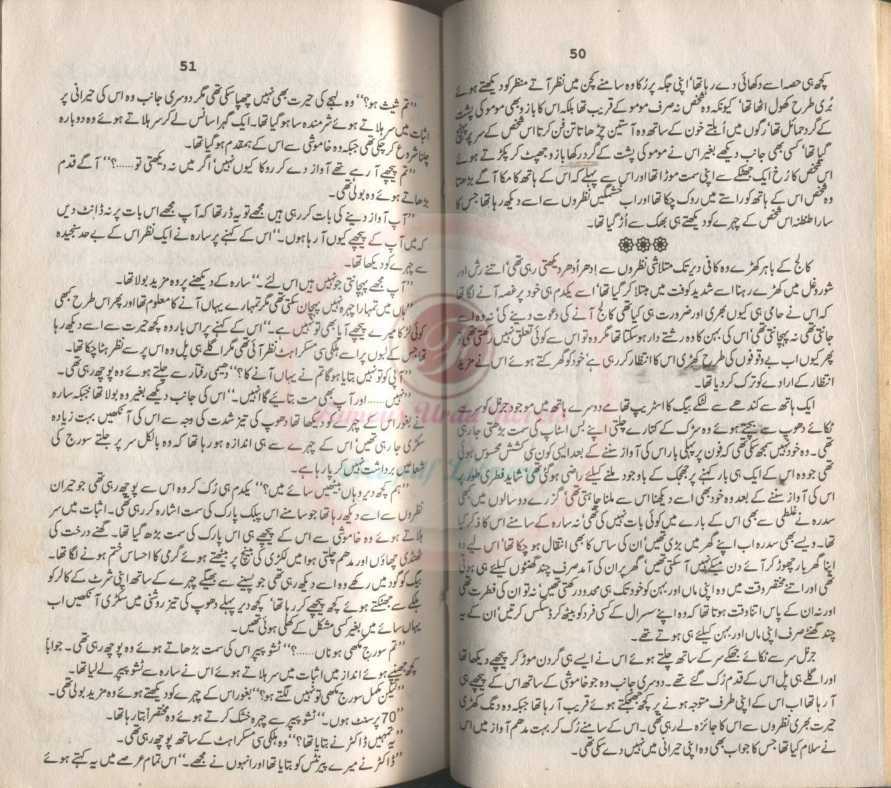 50
کچھ ہی حصہ اسے دکھائی دے رہا تھا‘ اپنی جگہ پر رُکا وہ سامنے کچن میں نظر آتے منظر کو دیکھتے ہوئے
بُری طرح کھول اٹھا تھا‘ کیونکہ وہ شخص نہ صرف مومو کے قریب تھا بلکہ اس کا بازو بھی مومو کی پشت
کے گرد حمائل تھا‘ رگوں میں اُبلتے خون کے ساتھ وہ آستین چڑھاتا تن فن کرتا اس شخص کے سر پر پہنچ
گیا تھا‘ کسی بھی جانب دیکھے بغیر اس نے مومو کی پشت کے گرد رکھا بازو جھپٹ کر پکڑتے ہوئے
اس شخص کا رُخ ایک جھٹکے سے اپنی سمت موڑا تھا اور اس سے پہلے کہ اس کے ہاتھ کا مکا آگے بڑھتا
وہ شخص اس کے ہاتھ کو راستے میں روک چکا تھا اور اب خشمگیں نظروں سے اسے دیکھ رہا تھا‘ جس کا
سارا طنطنہ اس شخص کے چہرے کو دیکھتے ہی بھک سے اُڑ گیا تھا۔
کالج کے باہر کھڑے وہ کافی دیر تک متلاشی نظروں سے اِدھر اُدھر دیکھتی رہی تھی‘ اتنے رش اور
شور و غل میں کھڑے رہنا اسے شدید کوفت میں مبتلا کر گیا تھا‘ اسے یکدم ہی خود پر غصہ آنے لگا تھا
کہ اس نے حامی ہی کیوں بھری اور ضرورت ہی کیا تھی کالج آنے کی دعوت دینے کی‘ نہ وہ اسے
جانتی تھی نہ پہچانتی تھی‘ اس کی بہن کا وہ رشتے دار ہو سکتا تھا مگر وہ تو اس سے کوئی تعلق نہیں رکھتی تھی تو
پھر کیوں اب بے وقوفوں کی طرح کھڑی اس کا انتظار کر رہی ہے‘ خود کو گھرکتے ہوئے اس نے مزید
انتظار کے ارادے کو ترک کر دیا تھا۔
ایک ہاتھ سے کندھے سے لٹکے بیگ کا اسٹریپ تھامے دوسرے ہاتھ میں موجود جرنل کو سر سے
ٹکائے دھوپ سے بچتے ہوئے وہ سڑک کے کنارے چلتی اپنے بس اسٹاپ کی سمت بڑھتی جا رہی
تھی۔ وہ خود نہیں سمجھ سکی تھی کہ فون پر پہلی بار اس کی آواز سننے کے بعد اسے ایسی کون سی کشش محسوس ہوئی
تھی جو وہ اس کے ایک ہی بار کہنے پر جھجک کے باوجود ملنے کیلئے راضی ہو گئی تھی‘ شاید فطری طور پر
اس کی آواز سننے کے بعد وہ خود بھی اسے دیکھنا اس سے ملنا چاہتی تھی‘ گزرے دو سالوں میں بھی
سدرہ نے غلطی سے بھی اس کے بارے میں کوئی بات نہیں کی تھی‘ نہ سارہ کے سامنے اس کا ذکر کیا
تھا۔ ویسے بھی سدرہ اب اپنے گھر میں بڑی تھیں‘ ان کی ساس کا بھی انتقال ہو چکا تھا‘ اس لیے وہ
اپنا گھر بار چھوڑ کر آئے دن میکے نہیں آ سکتی تھیں‘ گھر پر ان کی آمد صرف چند گھنٹوں کیلئے ہی ہوتی
تھی اور اتنے مختصر وقت میں وہ اپنی ماں اور بہن کو خود تک ہی محدود رکھتی تھیں‘ نہ تو ان کی فطرت تھی
اور نہ ان کے پاس اتنا وقت ہوتا تھا کہ وہ اپنے سسرال کے کسی فرد کو بیٹھ کر ڈسکس کرتیں‘ ان کے یہ
چند گھنٹے صرف اپنی ماں اور بہن کیلئے ہی ہوتے تھے۔
جرنل سر سے ٹکائے جھکے سر کے ساتھ چلتے ہوئے اس نے ایسے ہی گردن موڑ کر پیچھے دیکھا تھا
اور اگلے ہی پل اس کے قدم رُک گئے تھے۔ دوسری جانب وہ جو خاموشی کے ساتھ اس کے پیچھے ہی
آ رہا تھا اب اس کے اپنی طرف متوجہ ہونے پر کچھ جھجکتے ہوئے قریب آ رہا تھا جبکہ وہ دنگ کھڑی
حیرت بھری نظروں سے اس کا جائزہ لے رہی تھی۔ اس کے سامنے رُک کر بہت مدھم آواز میں اس
نے سلام کیا تھا جس کا جواب بھی وہ اپنی حیرانی میں نہیں دے سکی تھی۔
51
”تم شٹ ہو؟“ وہ لہجے کی حیرت بھی نہیں چھپا سکی تھی مگر دوسری جانب وہ اس کی حیرانی پر
اثبات میں سر ہلاتے ہوئے شرمندہ سا ہو گیا تھا۔ ایک گہرا سانس لے کر سر ہلاتے ہوئے وہ دوبارہ
چلنا شروع کر چکی تھی جبکہ وہ خاموشی سے اس کے ہمقدم ہو گیا تھا۔
”تم پیچھے آ رہے تھے آواز دے کر روکا کیوں نہیں‘ اگر میں نہ دیکھتی تو......؟“ آگے قدم
بڑھاتے ہوئے وہ بولی تھی۔
”آپ آواز دینے کی بات کر رہی ہیں مجھے تو یہ ڈر تھا کہ آپ مجھے اس بات پر نہ ڈانٹ دیں
کہ میں آپ کے پیچھے کیوں آ رہا ہوں۔“ اس کے کہنے پر سارہ نے ایک نظر اس کے بے حد سنجیدہ
سے چہرے کو دیکھا تھا۔
”آپ مجھے پہچانتی جو نہیں ہیں اس لئے۔“ سارہ کے دیکھنے پر وہ مزید بولا تھا۔
”ہاں میں تمہارا چہرہ نہیں پہچان سکتی تھی مگر تمہارے یہاں آنے کا معلوم تھا اور پھر اس طرح کبھی
کوئی لڑکا میرے پیچھے آیا بھی تو نہیں ہے۔“ اس کے کہنے پر اس بار وہ کچھ حیرت سے اسے دیکھ رہا
تھا جس کے لبوں پر اسے ہلکی سی مسکراہٹ نظر آئی تھی مگر اگلے ہی پل وہ اس پر سے نظر ہٹا چکا تھا۔
”آپی کو تو نہیں بتایا ہو گا تم نے یہاں آنے کا؟“ دھیمی رفتار سے چلتے ہوئے وہ پوچھ رہی تھی۔
”نہیں...... اور آپ بھی مت بتائیے گا انہیں۔“ اس کی جانب دیکھے بغیر وہ بولا تھا جبکہ سارہ
نے بغور اس کے چہرے کو دیکھا تھا دھوپ کی تیز شدت کی وجہ سے اس کی آنکھیں بہت زیادہ
سکڑی جا رہی تھیں‘ اس کے چہرے سے ہی اندازہ ہو رہا تھا کہ وہ بالکل سر پر جلتے سورج کی
شعاعیں برداشت نہیں کر پا رہا ہے۔
”ہم کچھ دیر وہاں بیٹھیں سائے میں؟“ یکدم ہی رُک کر وہ اس سے پوچھ رہی تھی جو حیران
نظروں سے اسے دیکھ رہا تھا جو سامنے اس پبلک پارک کی سمت اشارہ کر رہی تھی۔ اثبات میں سر
ہلاتے ہوئے وہ خاموشی سے اس کے پیچھے ہی اس پارک کی سمت بڑھ گیا تھا۔ گھنے درخت کی
ٹھنڈی چھاؤں اور مدھم چلتی ہوا میں لکڑی کی بینچ پر بیٹھتے ہوئے گرمی کا احساس ختم ہونے لگا تھا۔
بیگ کو گود میں رکھے وہ اسے دیکھ رہی تھی جو پسینے سے بھیگے چہرے کے ساتھ اپنی شرٹ کے کالر کو
ہلکے سے جھٹکتے ہوئے کچھ پیچھے کر رہا تھا‘ کچھ دیر پہلے دھوپ کی تیز روشنی میں سکڑی آنکھیں اب
یہاں سائے میں بغیر کسی مشکل کے کھلی ہوئی تھیں۔
”تم سورج مکھی ہو ناں......؟“ ٹشو پیپر اس کی سمت بڑھاتے ہوئے وہ پوچھ رہی تھی۔ جواباً
کچھ جھینپے ہوئے انداز میں اثبات میں سر ہلاتے ہوئے اس نے سارہ سے ٹشو پیپر لے لیا تھا۔
”لیکن مکمل سورج مکھی تو نہیں لگتے ہو؟“ بغور اس کے چہرے کو دیکھتے ہوئے وہ مزید بولی تھی۔
”70 پرسنٹ ہوں۔“ ٹشو پیپر سے چہرہ خشک کرتے ہوئے وہ مختصراً بتا رہا تھا۔
”یہ تمہیں ڈاکٹر نے بتایا تھا؟“ وہ ہلکی سی مسکراہٹ کے ساتھ پوچھ رہی تھی۔
”ڈاکٹر نے میرے پیرنٹس کو بتایا تھا اور انہوں نے مجھے۔“ اس تمام عرصے میں یہ کہتے ہوئے